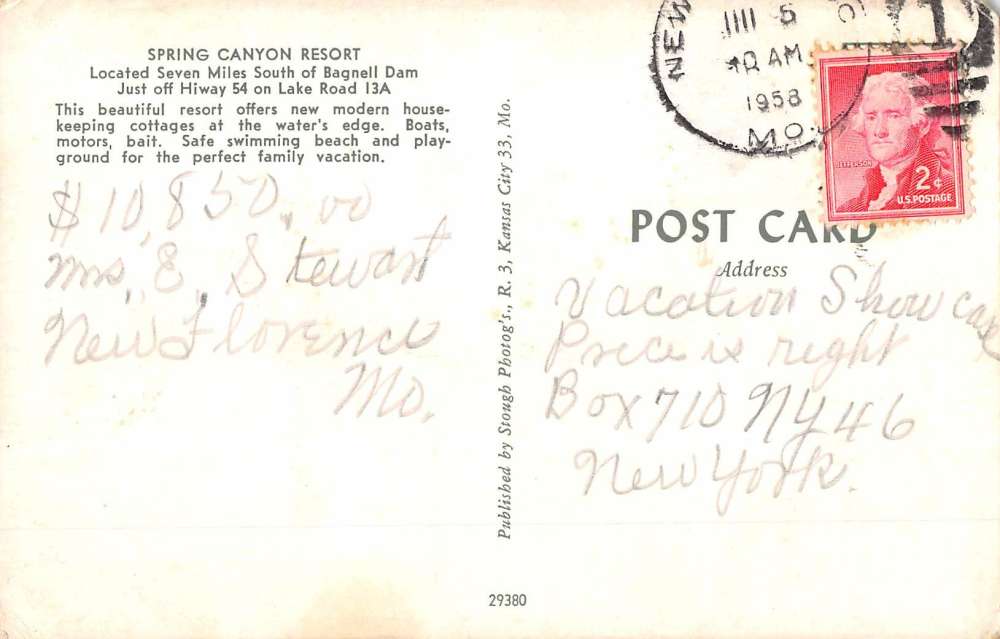 SPRING CANYON RESORT
Located Seven Miles South of Bagnell Dam
Just off Hiway 54 on Lake Road 13A
This beautiful resort offers new modern house-
keeping cottages at the water's edge. Boats,
motors, bait. Safe swimming beach and play-
ground for the perfect family vacation.
$10,850.00
Mrs. E. Stewart
New Florence
Mo.
Published by Stough Photog's., R. 3, Kansas City 33, Mo.
29380
NEW
5
10 AM
1958
MO.
JEFFERSON
2¢
U.S. POSTAGE
POST CARD
Address
Vacation Show case
Price is right
Box 710 NY 46
New York.